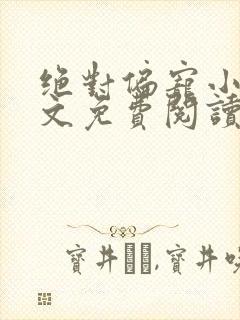 絕對偏寵小
文免費閱讀
寶井,寶井